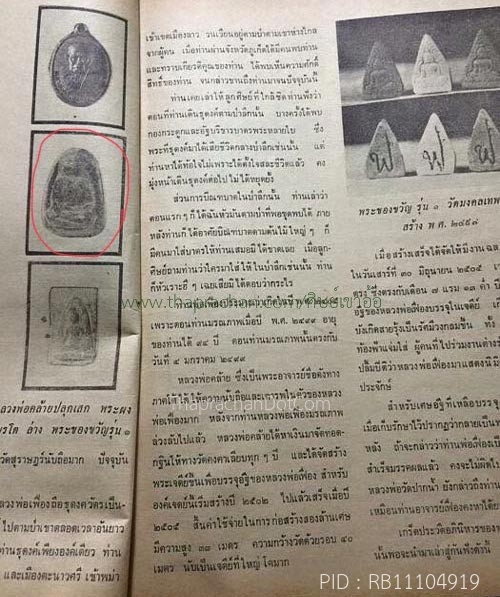 เข้าเขตเมืองลาว วนเวียนอยู่ตามป่าตามเขาห่างไกล
จากผู้คน เมื่อท่านผ่านจังหวัดภูเก็ตได้มีคนพบท่าน
และทราบเกียรติคุณของท่าน ได้พบเห็นความศักดิ์
สิทธิ์ของท่าน จนกล่าวขานถึงท่านมาจนปัจจุบันนี้
ท่านเคยเล่าให้ลูกศิษย์ที่ใกล้ชิดท่านฟังว่า
ตอนที่ท่านเดินธุดงค์ตามป่าลึกนั้น บางครั้งได้พบ
กองกระดูกและอัฐบริขารบาตรพระหลายใบ ซึ่ง
พระที่ธุดงค์มาได้เสียชีวิตกลางป่าลึกเช่นนั้น แต่
ท่านหาได้ท้อใจไม่เพราะได้ตั้งใจสละชีวิตแล้ว คง
มุ่งหน้าเดินธุดงค์ต่อไปไม่ได้หยุดยั้ง
ส่วนการบิณฑบาตในป่าลึกนั้น ท่านเล่าว่า
ตอนแรก ๆ ก็ได้ฉันหัวมันตามป่าที่พอขุดพบได้ ภาย
หลังท่านก็ได้อาศัยบิณฑบาตตามต้นไม้ใหญ่ ๆ ก็
มีคนมาใส่บาตรให้ท่านเสมอมิได้ขาดเลย เมื่อลูก-
ศิษย์ถามท่านว่าใครมาใส่ให้ ในป่าลึกเช่นนั้น ท่าน
ก็หัวเราะฮึ ๆ เฉยเสียมิได้ตอบว่ากระไร
www.thaprachan.com/
เพราะตอนท่านมรณภาพเมื่อปี พ.ศ. ๒๔๙๙ อายุ
ของท่านได้ ๙๔ ปี ตอนท่านมรณภาพนั้นตรงกับ
วันที่ ๔ มกราคม ๒๔๙๙
หลวงพ่อคล้าย ซึ่งเป็นพระอาจารย์ชื่อดังทาง
ภาคใต้
thaprachan.com
เฟื่องมาก หลังจากท่านหลวงพ่อเฟื่องมรณภาพ
ล่วงลับไปแล้ว หลวงพ่อคล้ายได้หาเงินมาจัดทอด-
กฐินให้ทางวัดคงคาเลียบทุก ๆ ปี และได้จัดสร้าง
พระเจดีย์ขึ้นเพื่อบรรจุอัฐิของหลวงพ่อเฟื่อง สำหรับ
องค์เจดีย์นี้เริ่มสร้างปี ๒๕๐๒ ไปแล้วเสร็จเมื่อปี
๒๕๐๕ สิ้นค่าใช้จ่ายในการก่อสร้างสองล้านเศษ
มีความสูง ๓๓ เมตร ความกว้างวัดด้วยรอบ ๔๐
เมตร นับเป็นเจดีย์ที่ใหญ่โตมาก
ลวงพ่อคล้ายปลุกเสก พระผง
รโต ล่าง พระของขวัญรุ่น ๑
วัดสุราษฎร์นับถือมาก ปัจจุบัน
ลวงพ่อเฟื่องถือธุดงควัตรเป็น-
ไปตามป่าเขาตลอดเวลาอันยาว
ท่านธุดงค์เพียงองค์เดียว ท่าน
และเมืองตะนาวศรี เข้าพม่า
พระของขวัญ รุ่น ๑ วัดมงคลเทพ
สร้าง พ.ศ. ๒๔๙๗
เมื่อสร้างเสร็จได้จัดให้มีงานฉล
ในวันเสาร์ที่ ๓๐ มิถุนายน ๒๕๐๕ เ
ตรง ซึ่งตรงกับเดือน ๗ แรม ๑๓ ค่ำ ปี
ของหลวงพ่อเฟื่องบรรจุในเจดีย์
บังเกิดสายรุ้งเป็นรัศมีวงกลมขึ้น ทั้ง
ท้องฟ้าแจ่มใส ผู้คนที่ไปร่วมงานต่างรู้
ปลื้มปิติว่าหลวงพ่อเฟื่องมาแสดงนิมิ
ประจักษ์
สำหรับเศษอัฐิที่เหลือบรรจุ
เมื่อเก็บรักษาไว้ปรากฏว่ากลายเป็นพ
หลัง ถ้าจะกล่าวว่าท่านพ่อเฟื่องได้
สำเร็จมรรคผลแล้ว คงจะไม่ผิดไป
หลวงพ่อวัดปากน้ำ ยังกล่าวถึงท่าน
เหมือนท่านอาจารย์เฟื่องคงหาได้ย
เกร็ดประวัติอภินิหารของท่าน
นั้นพอจะนำมาเล่าสู่กันฟังดังนี้
PID : RB11104919